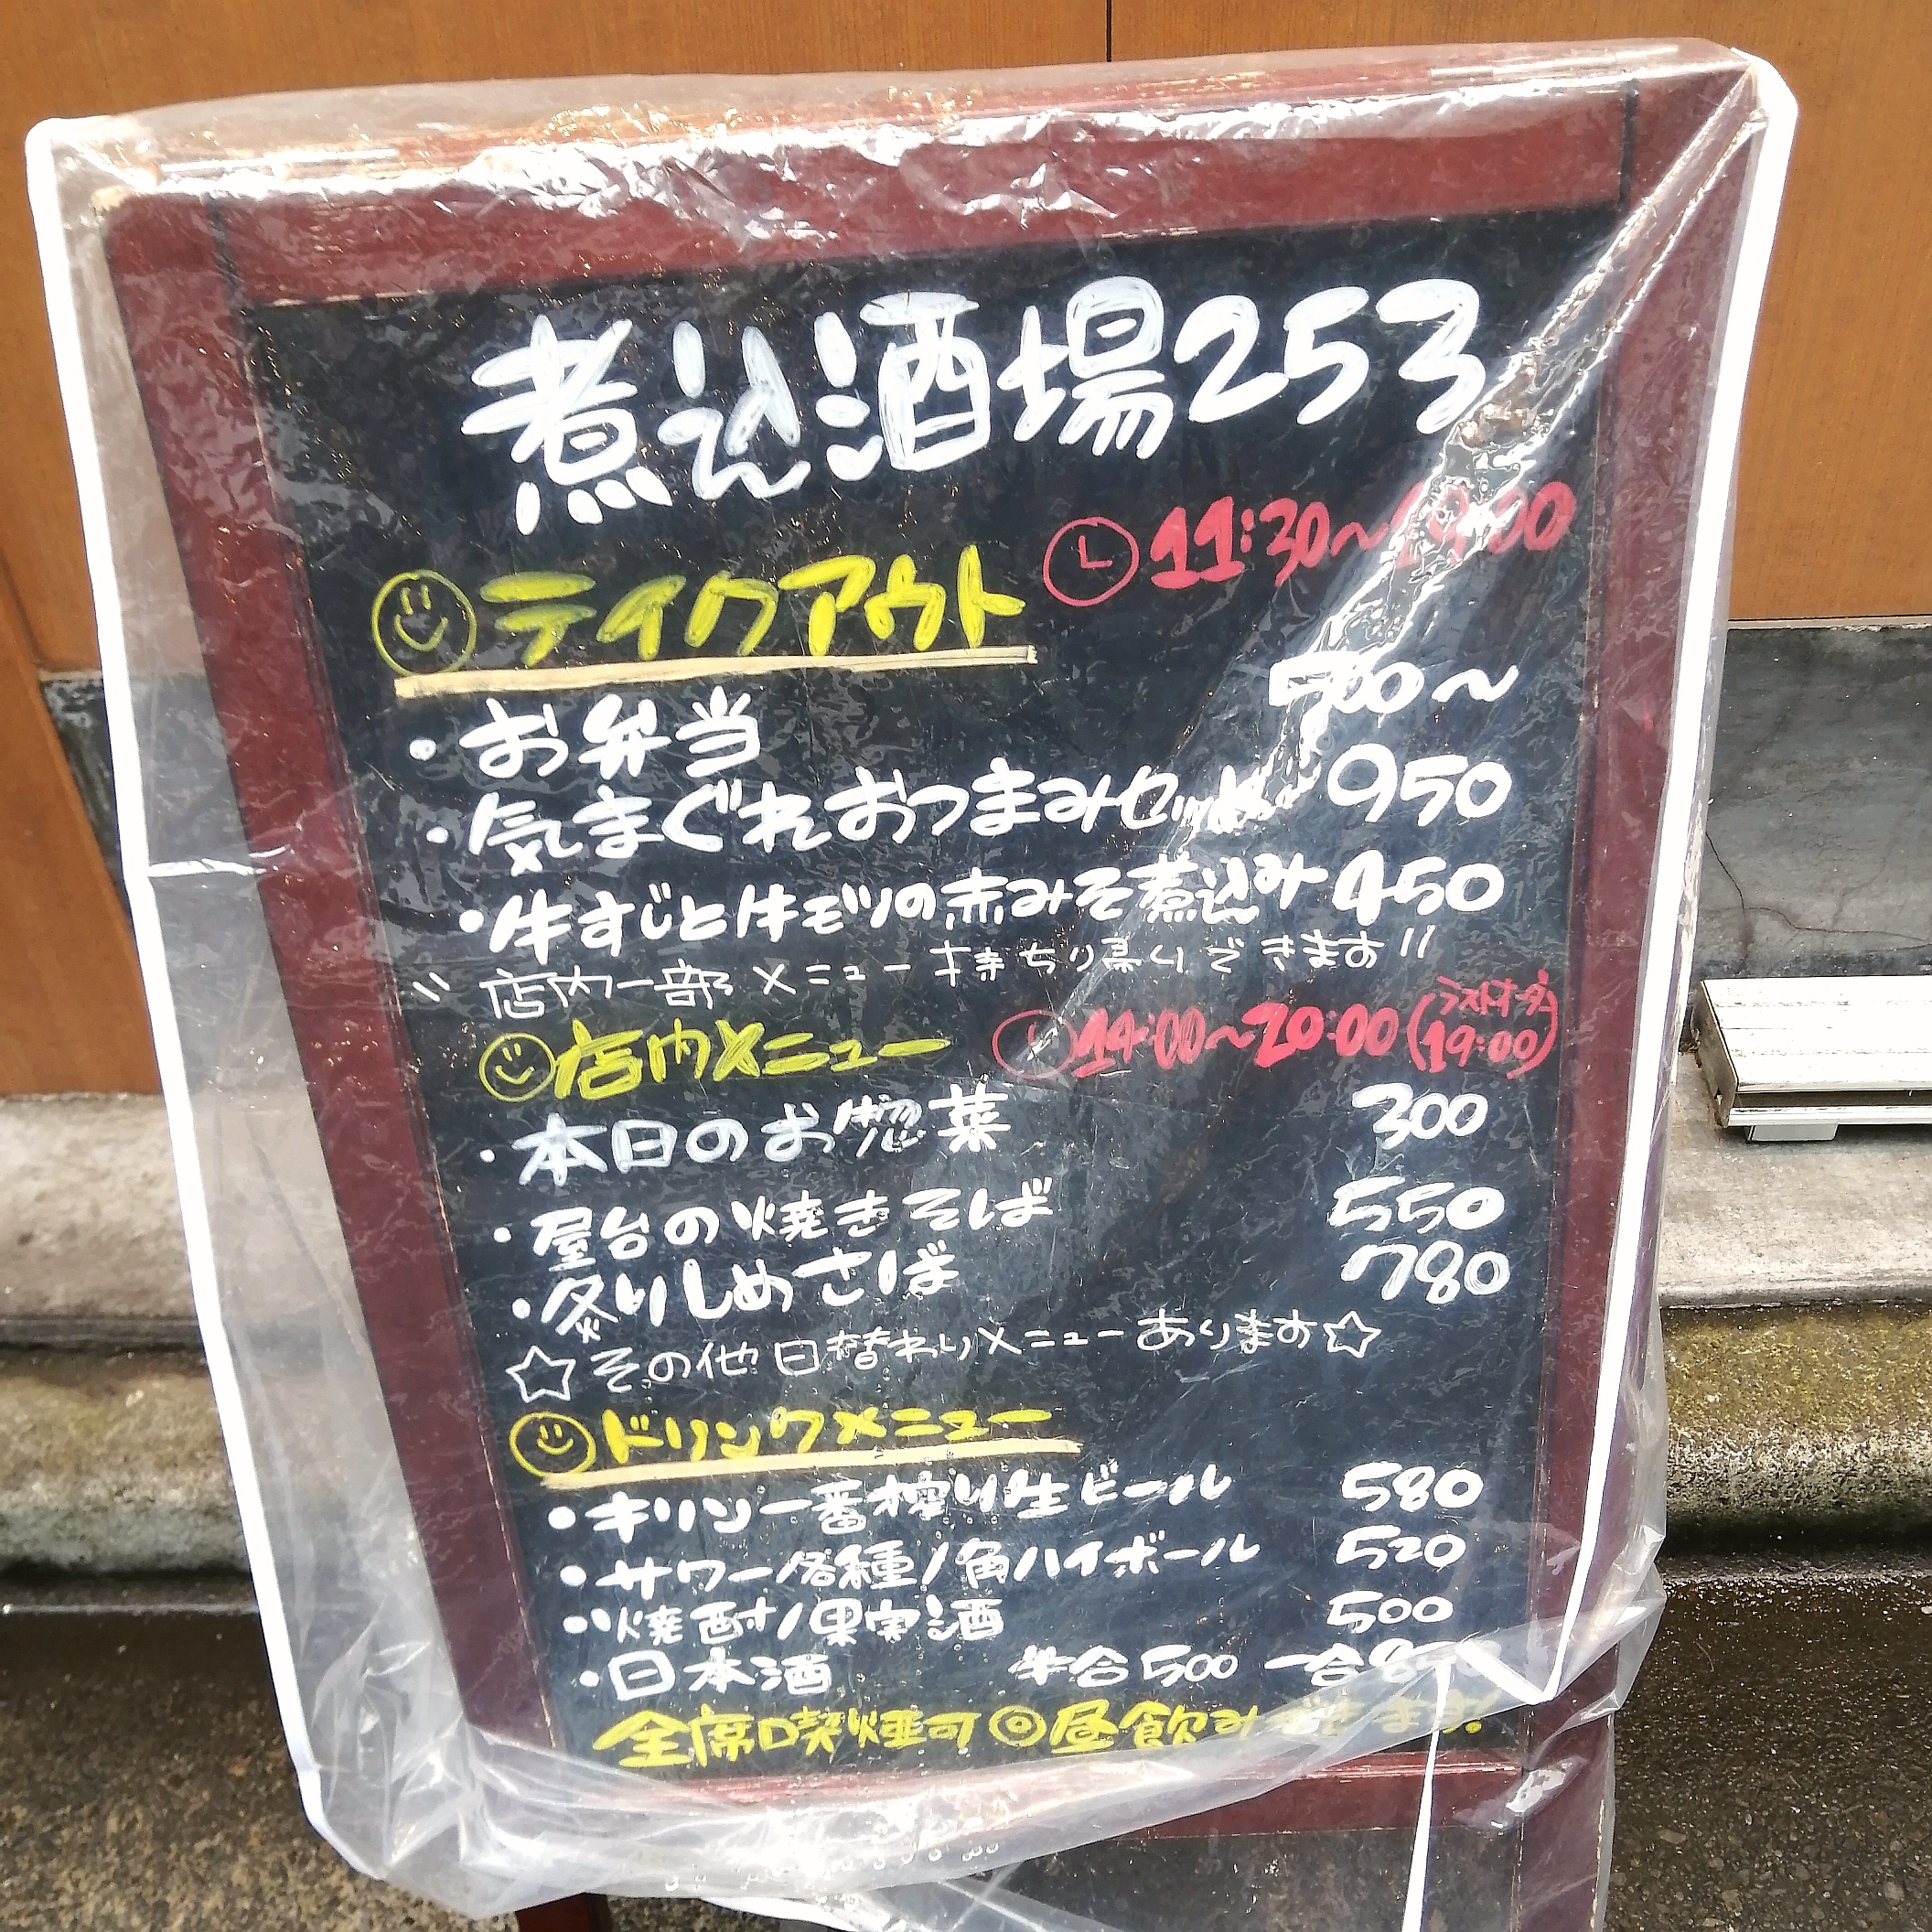 煮込酒場253
テイクアウト 11:30~
・お弁当 500~
・気まぐれおつまみセット 950
・牛すじと牛モツの赤みそ煮込み 450
〃店内一部メニュー持ち帰りできます〃
店内メニュー 14:00~20:00(ラストオーダー19:00)
・本日のお惣菜 300
・屋台の焼きそば 550
・炙りしめさば 780
☆その他日替わりメニューあります☆
ドリンクメニュー
・キリン一番搾り生ビール 580
・サワー各種/角ハイボール 520
・焼酎/果実酒 500
・日本酒 半合500 一合
全席喫煙可◎昼飲みできます!